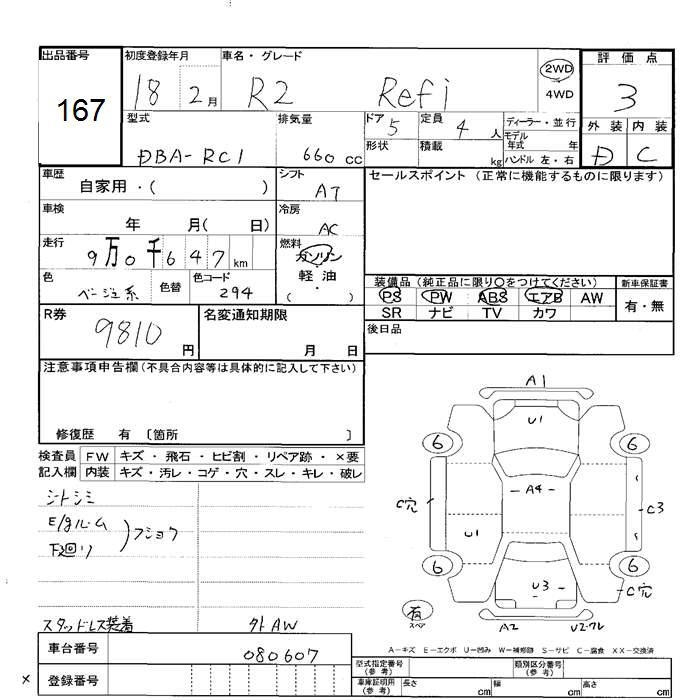 出品番号 初度登録年月 車名・グレード 2WD 評価点
167 18 2月 R2 Refi 4WD 3
型式 排気量 ドア 5 定員 4 人 ディーラー・並行 外装 内装
DBA-RC1 660 cc 形状 積載 kg モデル年式 年 D C
ハンドル 左・右
車歴 シフト セールスポイント (正常に機能するものに限ります)
自家用・( ) A7
車検 冷房
年 月( 日) AC
走行 燃料
9万0千647km ガソリン
軽・油
色 色替 色コード ( ・ ) 装備品 (純正品に限り○をつけてください) 新車保証書
ベージュ系 294 PS PW ABS エアB AW 有・無
SR ナビ TV カワ
R券 名変通知期限 後日品
9810 円 月 日
注意事項申告欄 (不具合内容等は具体的に記入して下さい)
修復歴 有 〔箇所 〕
検査員 FW キズ・飛石・ヒビ割・リペア跡・×要
記入欄 内装 キズ・汚レ・コゲ・穴・スレ・キレ・破レ
シートシミ
E/gルーム
下廻り
フショク
スタッドレス装着 外AW
A1
U1
6 6
A4
C穴 C3
U1
6 6
U3
C穴
有
スペア
A2 U2・ワレ
A-キズ E-エクボ U-凹み W-補修跡 S-サビ C-腐食 XX-交換済
車台番号 080607 型式指定番号 (参考) 類別区分番号 (参考)
× 登録番号 車庫証明用 (参考) 長さ cm 幅 cm 高さ cm